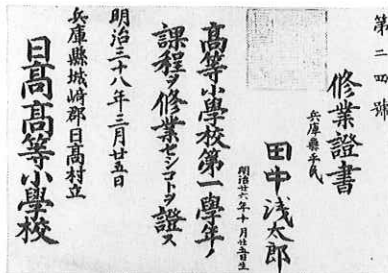 第二四號
修業證書
兵庫縣平民
田中浅太郎
明治廿六年十月廿五日生
高等小學校第一學年ノ
課程ヲ修業セシコトヲ證ス
明治三十八年三月廿五日
兵庫縣城崎郡日高村立
日高高等小學校